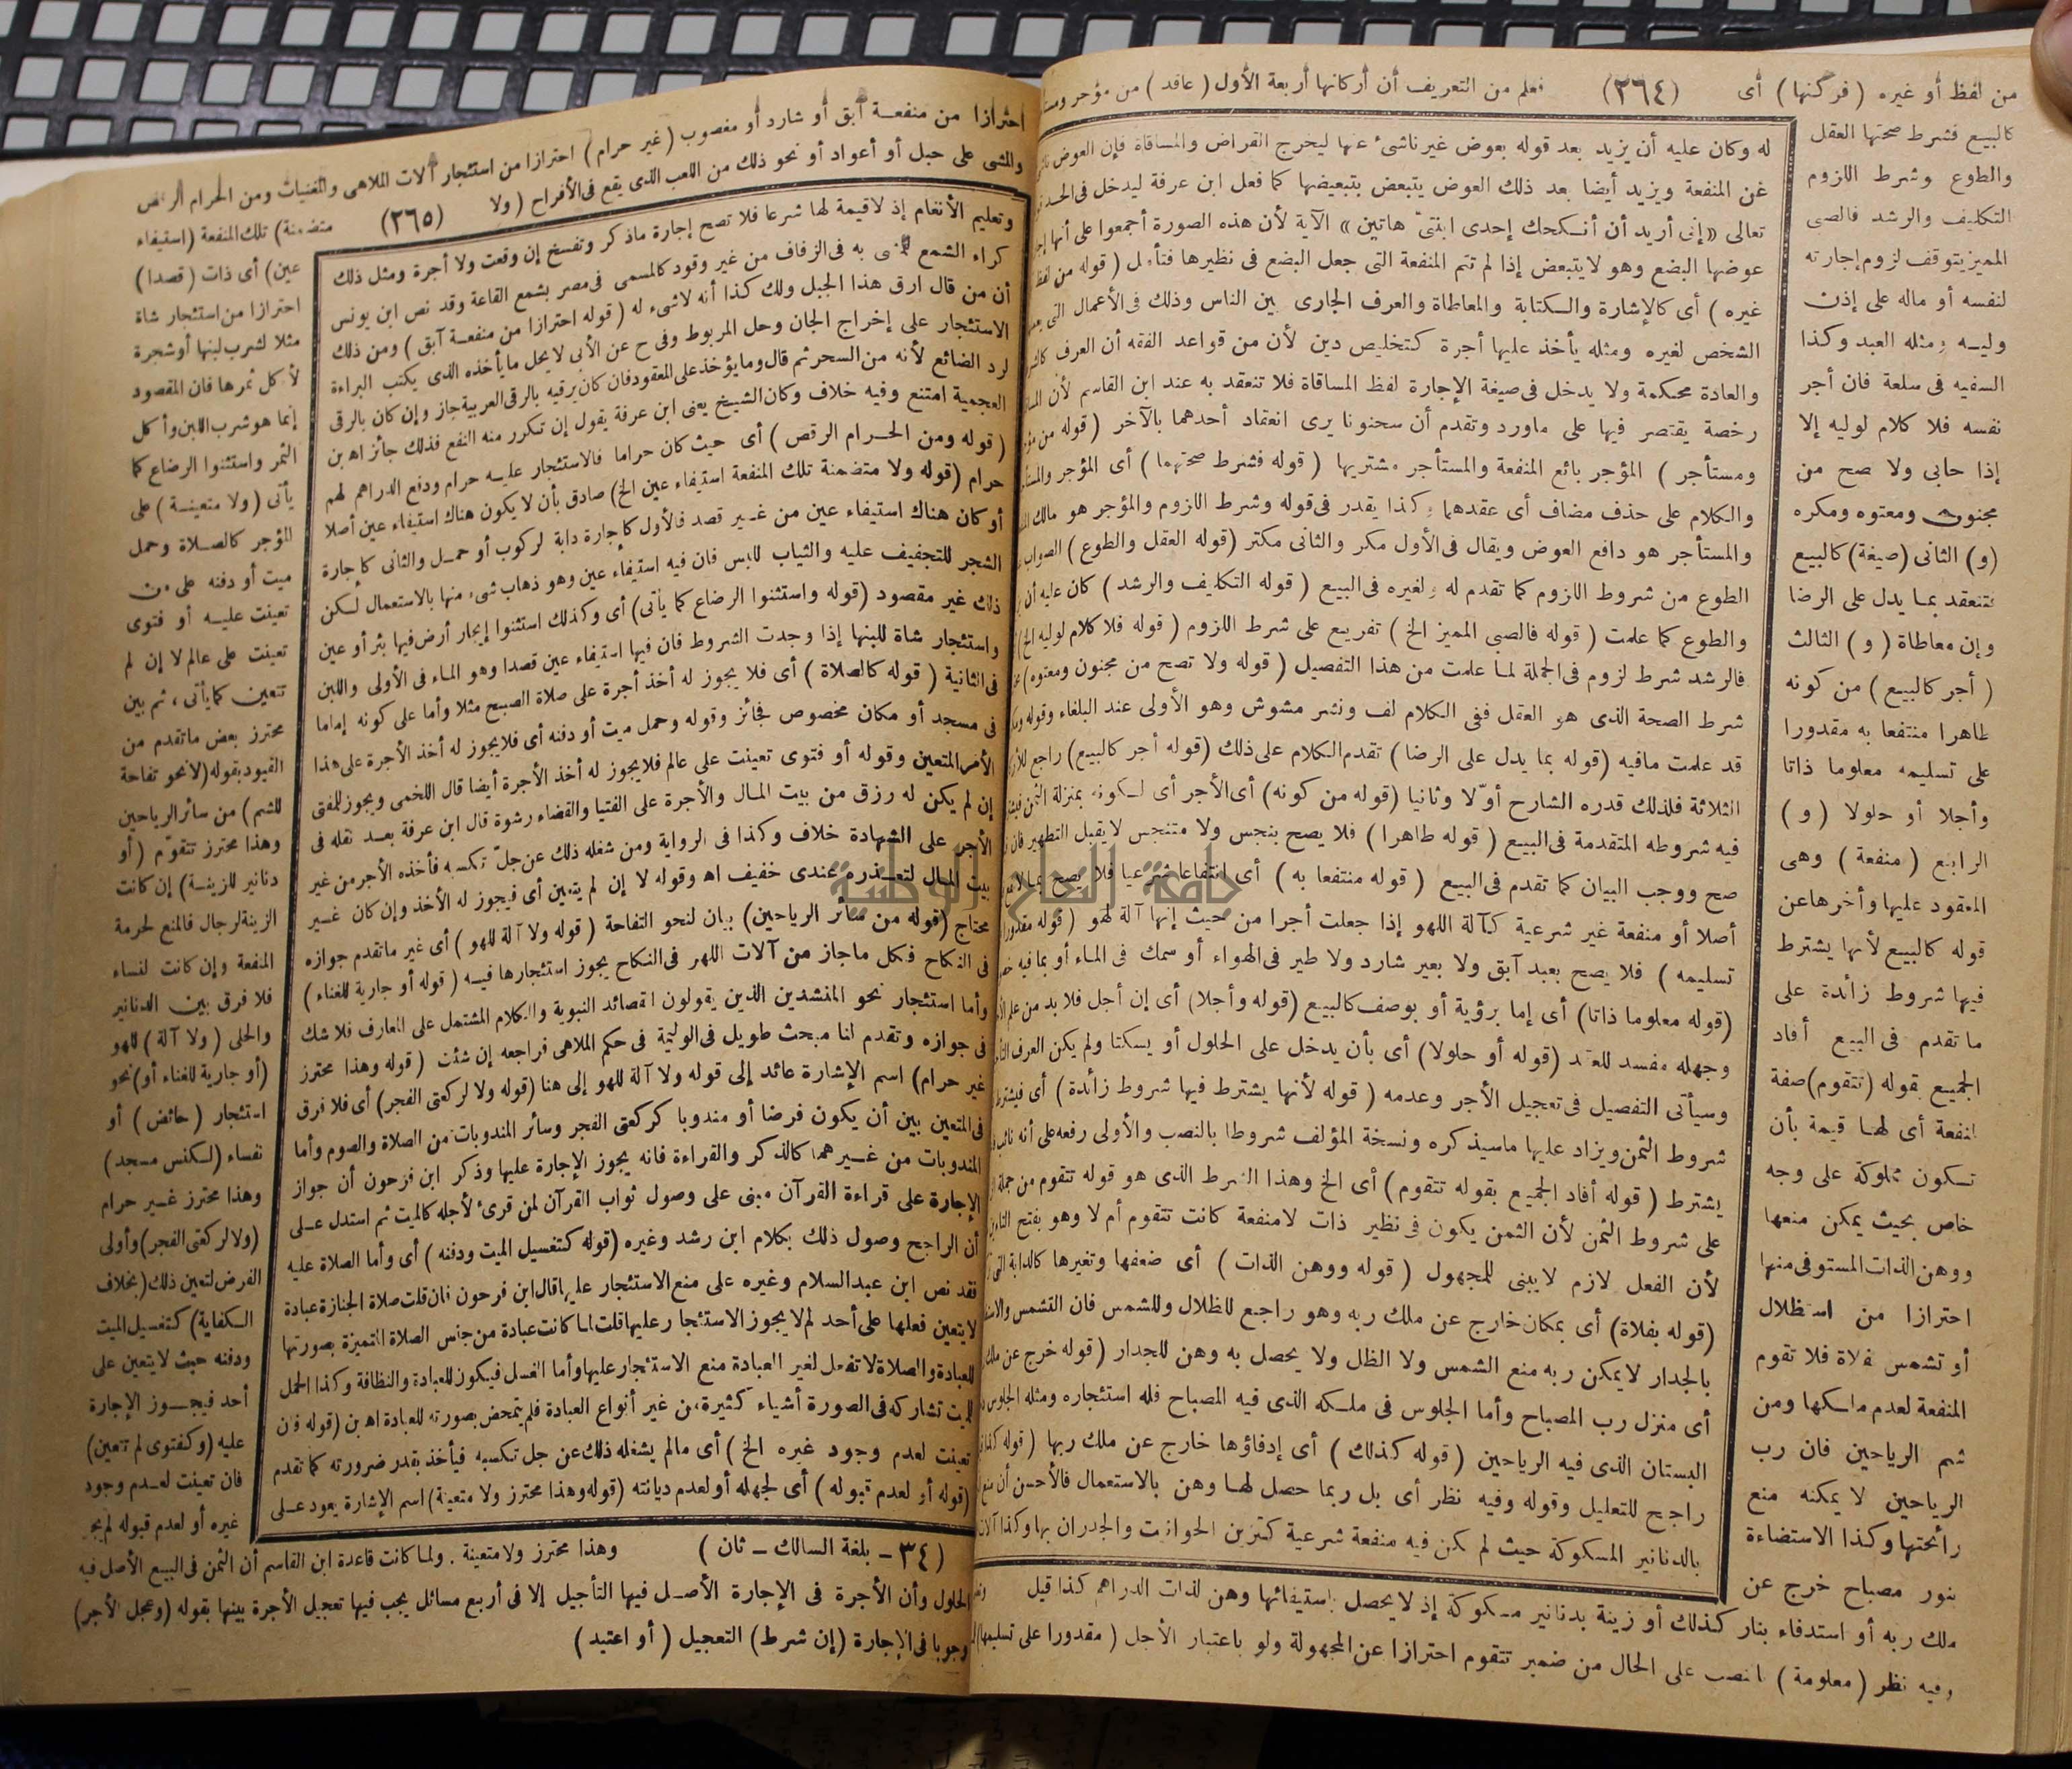 من لفظ أو غيره (فركنها) أى (٢٦٤) فعلم من التعريف أن أركانها أربعة الأول (عاقد) من مؤجر
كالبيع فشرط صحتها العقل
والطوع وشرط اللزوم
التكليف والرشد فالصبى
المميز يتوقف لزوم إجارته
لنفسه أو ماله على إذن
وليه ومثله العبد وكذا
السفيه فى سلعة فان أجر
نفسه فلا كلام لوليه إلا
إذا حابى ولا صح من
مجنون ومعتوه ومكره
(و) الثانى (صيغة) كالبيع
فتنعقد بما يدل على الرضا
وإن معاطاة (و) الثالث
(أجر كالبيع) من كونه
طاهرا منتفعا به مقدورا
على تسليمه معلوما ذاتا
وأجلا أو حلولا (و)
الرابع (منفعة) وهى
المعقود عليها وأخرها عن
قوله كالبيع لأنها يشترط
فيها شروط زائدة على
ما تقدم فى البيع أفاد
الجميع بقوله (تتقوم) صفة
لمنفعة أى لها قيمة بأن
تكون مملوكة على وجه
خاص بحيث يمكن منعها
ووهن الذات المستوفى منها
احترازا من استظلال
أو تشمس بفلاة فلا تقوم
المنفعة لعدم ملكها ومن
شم الرياحين فان رب
الرياحين لا يمكنه منع
رائحتها وكذا الاستضاءة
بنور مصباح خرج عن
ملك ربه أو استدفاء بنار كذلك أو زينة بدنانير مسكوكة إذ لا يحصل باستيفائها وهن لذات الدراهم كذا قيل
وفيه نظر (معلومة) انصب على الحال من ضمير تتقوم احترازا عن المجهولة ولو باعتبار الأجل (مقدورا على تسليمها)
له وكان عليه أن يزيد بعد قوله بعوض غير ناشئ عنها ليخرج القراض والمساقاة فإن العوض
عن المنفعة ويزيد أيضا بعد ذلك العوض يتبعض بتبعيضها كما فعل ابن عرفة ليدخل فى الحد
تعالى «إنى أريد أن أنكحك إحدى ابنتىّ هاتين» الآية لأن هذه الصورة أجمعوا على أنها
عوضها البضع وهو لا يتبعض إذا لم تتم المنفعة التى جعل البضع فى نظيرها فتأمل (قوله من لفظ
غيره) أى كالإشارة والكتابة والمعاطاة والعرف الجارى بين الناس وذلك فى الأعمال التى
الشخص لغيره ومثله يأخذ عليها أجرة كتخليص دين لأن من قواعد الفقه أن العرف
والعادة محكمة ولا يدخل فى صيغة الإجارة لفظ المساقاة فلا تنعقد به عند ابن القاسم لأن
رخصة يقتصر فيها على ماورد وتقدم أن سحنونا يرى انعقاد أحدهما بالآخر (قوله من
ومستأجر) المؤجر بائع المنفعة والمستأجر مشتريها (قوله فشرط صحتهما) أى المؤجر
والكلام على حذف مضاف أى عقدهما وكذا يقدر فى قوله وشرط اللزوم والمؤجر هو مالك
والمستأجر هو دافع العوض ويقال فى الأول مكر والثانى مكتر (قوله العقل والطوع) الصواب
الطوع من شروط اللزوم كما تقدم له ولغيره فى البيع (قوله التكليف والرشد) كان عليه أن
والطوع كما علمت (قوله فالصبى المميز الخ) تفريع على شرط اللزوم (قوله فلا كلام لوليه الخ)
فالرشد شرط لزوم فى الجملة لما علمت من هذا التفصيل (قوله ولا تصح من مجنون ومعتوه)
شرط الصحة الذى هو العقل ففى الكلام لف ونشر مشوش وهو الأولى عند البلغاء وقوله
قد علمت مافيه (قوله بما يدل على الرضا) تقدم الكلام على ذلك (قوله أجر كالبيع) راجع
الثلاثة فلذلك قدره الشارح أوّلا وثانيا (قوله من كونه) أى الأجر أى لكونه بمنزلة الثمن
فيه شروطه المتقدمة فى البيع (قوله طاهرا) فلا يصح بنجس ولا متنجس لا يقبل التطهير فان
صح ووجب البيان كما تقدم فى البيع (قوله منتفعا به) أى انتفاعا شرعيا فلا يصح بما
أصلا أو منفعة غير شرعية كآلة اللهو إذا جعلت أجرا من حيث إنها آلة لهو (قوله مقدورا
تسليمه) فلا يصح بعبد آبق ولا بعير شارد ولا طير فى الهواء أو سمك فى الماء أو بما فيه
(قوله معلوما ذاتا) أى إما برؤية أو بوصف كالبيع (قوله وأجلا) أى إن أجل فلا بد من علم
وجهله مفسد للعقد (قوله أو حلولا) أى بأن يدخل على الحلول أو يسكتا ولم يكن العرف
وسيأتى التفصيل فى تعجيل الأجر وعدمه (قوله لأنها يشترط فيها شروط زائدة) أى
شروط الثمن ويزاد عليها ماسيذكره ونسخة المؤلف شروطا بالنصب والأولى رفعه على أنه نائب
يشترط (قوله أفاد الجميع بقوله تتقوم) أى الخ وهذا الشرط الذى هو قوله تتقوم من جملة
على شروط الثمن لأن الثمن يكون فى نظير ذات لا منفعة كانت تتقوم أم لا وهو بفتح
لأن الفعل لازم لا يبنى للمجهول (قوله ووهن الذات) أى ضعفها وتغيرها كالدابة
(قوله بفلاة) أى بمكان خارج عن ملك ربه وهو راجع للظلال وللشمس فان التشمس
بالجدار لا يمكن ربه منع الشمس ولا الظل ولا يحصل به وهن للجدار (قوله خرج عن ملك
أى منزل رب المصباح وأما الجلوس فى ملكه الذى فيه المصباح فله استئجاره ومثله الجلوس
البستان الذى فيه الرياحين (قوله كذلك) أى إدفاؤها خارج عن ملك ربها (قوله
راجع للتعليل وقوله وفيه نظر أى بل ربما حصل لها وهن بالاستعمال فالأحسن أن
بالدنانير المسكوكة حيث لم يكن فيه منفعة شرعية كتزين الحوانيت والجدران بها وكذا
احترازا من منفعة آبق أو شارد أو مغصوب (غير حرام) احترازا من استئجار آلات الملاهى والمغنيات ومن الحرام الرقص
والمشى على حبل أو أعواد أو نحو ذلك من اللعب الذى يقع فى الأفراح (ولا (٣٦٥) متضمنة) تلك المنفعة (استيفاء
عين) أى ذات (قصدا)
احترازا من استئجار شاة
مثلا لشرب لبنها أو شجرة
لأكل ثمرها فان المقصود
إنما هو شرب اللبن وأكل
الثمر واستثنوا الرضاع كما
يأتى (ولا متعينة) على
المؤجر كالصلاة وحمل
ميت أو دفنه على من
تعينت عليه أو فتوى
تعينت على عالم لا إن لم
تتعين كما يأتى، ثم بين
محترز بعض ماتقدم من
القيود بقوله (لا نحو تفاحة
للشم) من سائر الرياحين
وهذا محترز تتقوّم (أو
دنانير للزينة) إن كانت
الزينة لرجال فالمنع لحرمة
المنفعة وإن كانت لنساء
فلا فرق بين الدنانير
والحلى (ولا آلة) للهو
(أو جارية للغناء أو) نحو
استئجار (حائض) أو
نفساء (لكنس مسجد)
وهذا محترز غير حرام
(ولا لركعتى الفجر) وأولى
الفرض لتعين ذلك (بخلاف
الكفاية) كتغسيل الميت
ودفنه حيث لا يتعين على
أحد فيجوز الإجارة
عليه (وكفتوى لم تتعين)
فان تعينت لعدم وجود
غيره أو لعدم قبوله لم يجز
وتعليم الأنغام إذ لا قيمة لها شرعا فلا تصح إجارة ماذكر وتفسخ إن وقعت ولا أجرة ومثل ذلك
كراء الشمع به فى الزفاف من غير وقود كالمسمى فى مصر بشمع القاعة وقد نص ابن يونس
أن من قال ارق هذا الجبل ولك كذا أنه لا شىء له (قوله احترازا من منفعة آبق) ومن ذلك
الاستئجار على إخراج الجان وحل المربوط وفى ح عن الأبى لا يحل ما يأخذه الذى يكتب البراءة
لرد الضائع لأنه من السحر ثم قال وما يؤخذ على المعقود فان كان يرقيه بالرقى العربية جاز وإن كان بالرقى
العجمية امتنع وفيه خلاف وكان الشيخ يعنى ابن عرفة يقول إن تكرر منه النفع فذلك جائز اه بن
(قوله ومن الحرام الرقص) أى حيث كان حراما فالاستئجار عليه حرام ودفع الدراهم لهم
حرام (قوله ولا متضمنة تلك المنفعة استيفاء عين الخ) صادق بأن لا يكون هناك استيفاء عين أصلا
أو كان هناك استيفاء عين من غير قصد فالأول كإجارة دابة لركوب أو حمل والثانى كإجارة
الشجر للتجفيف عليه والثياب للبس فان فيه استيفاء عين وهو ذهاب شىء منها بالاستعمال لكن
ذلك غير مقصود (قوله واستثنوا الرضاع كما يأتى) أى وكذلك استثنوا إيجار أرض فيها بئر أو عين
واستئجار شاة للبنها إذا وجدت الشروط فان فيها استيفاء عين قصدا وهو الماء فى الأولى واللبن
فى الثانية (قوله كالصلاة) أى فلا يجوز له أخذ أجرة على صلاة الصبح مثلا وأما على كونه إماما
فى مسجد أو مكان مخصوص فجائز وقوله وحمل ميت أو دفنه أى فلا يجوز له أخذ الأجرة على هذا
الأمر المتعين وقوله أو فتوى تعينت على عالم فلا يجوز له أخذ الأجرة أيضا قال اللخمى ويجوز للمفتى
إن لم يكن له رزق من بيت المال والأجرة على الفتيا والقضاء رشوة قال ابن عرفة بعد نقله فى
الأجر على الشهادة خلاف وكذا فى الرواية ومن شغله ذلك عن جلّ تكسبه فأخذه الأجر من غير
بيت المال لتعذره عندى خفيف اه وقوله لا إن لم يتعين أى فيجوز له الأخذ وإن كان غير
محتاج (قوله من سائر الرياحين) بيان لنحو التفاحة (قوله ولا آلة للهو) أى غير ماتقدم جوازه
فى النكاح فكل ماجاز من آلات اللهو فى النكاح يجوز استئجارها فيه (قوله أو جارية للغناء)
وأما استئجار نحو المنشدين الذين يقولون القصائد النبوية والكلام المشتمل على المعارف فلا شك
فى جوازه وتقدم لنا مبحث طويل فى الوليمة فى حكم الملاهى فراجعه إن شئت (قوله وهذا محترز
غير حرام) اسم الإشارة عائد إلى قوله ولا آلة للهو إلى هنا (قوله ولا لركعتى الفجر) أى فلا فرق
فى المتعين بين أن يكون فرضا أو مندوبا كركعتى الفجر وسائر المندوبات من الصلاة والصوم وأما
المندوبات من غيرهما كالذكر والقراءة فانه يجوز الإجارة عليها وذكر ابن فرحون أن جواز
الإجارة على قراءة القرآن مبنى على وصول ثواب القرآن لمن قرئ لأجله كالميت ثم استدل على
أن الراجح وصول ذلك بكلام ابن رشد وغيره (قوله كتغسيل الميت ودفنه) أى وأما الصلاة عليه
فقد نص ابن عبد السلام وغيره على منع الاستئجار عليها قال ابن فرحون فان قلت صلاة الجنازة عبادة
لا يتعين فعلها على أحد لم لا يجوز الاستئجار عليها قلت لما كانت عبادة من جنس الصلاة المتميزة بصورتها
للعبادة والصلاة لا تفعل لغير العبادة منع الاستئجار عليها وأما الغسل فيكون للعبادة والنظافة وكذا الحمل
للميت تشاركه فى الصورة أشياء كثيرة من غير أنواع العبادة فلم يتمحض بصورته للعبادة اه بن (قوله فان
تعينت لعدم وجود غيره الخ) أى مالم يشغله ذلك عن جل تكسبه فيأخذ بقدر ضرورته كما تقدم
(قوله أو لعدم قبوله) أى لجهله أو لعدم ديانته (قوله وهذا محترز ولا متعينة) اسم الإشارة يعود على
وهذا محترز ولا متعينة. ولما كانت قاعدة ابن القاسم أن الثمن فى البيع الأصل فيه
(٣٤ - بلغة السالك - ثان)
الحلول وأن الأجرة فى الإجارة الأصل فيها التأجيل إلا فى أربع مسائل يجب فيها تعجيل الأجرة بينها بقوله (وعجل الأجر)
وجوبا فى الإجارة (إن شرط) التعجيل (أو اعتيد)
جامعة النجاح الوطنية